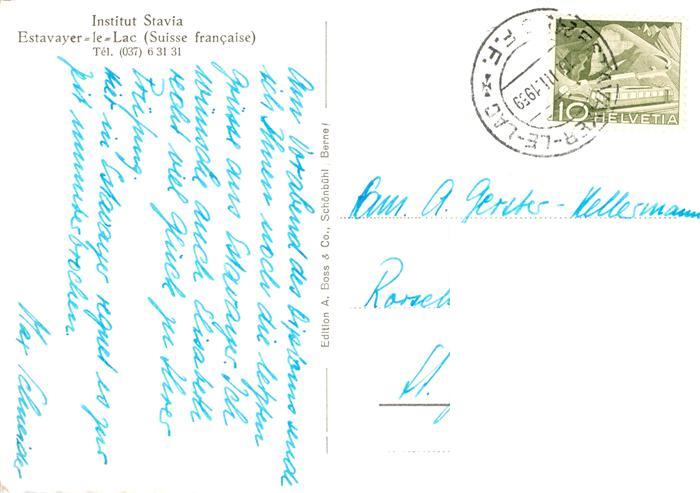 Institut Stavia
Estavayer-le-Lac (Suisse française)
Tél. (037) 6 31 31
Am Vorabend des Diploms sende
ich Ihnen noch die letzten
Grüsse aus Estavayer. Ich
wünsche auch Elisabeth
recht viel Glück zu Ihrer
Prüfung.
Hier in Estavayer regnet es zur
Zeit ununterbrochen.
Max Schneider
Edition A. Boss & Co., Schönbühl / Berne
ESTAVAYER-LE-LAC
1959
10 HELVETIA
Fam. A. Gerster-Kellermann
Rorsch
St.